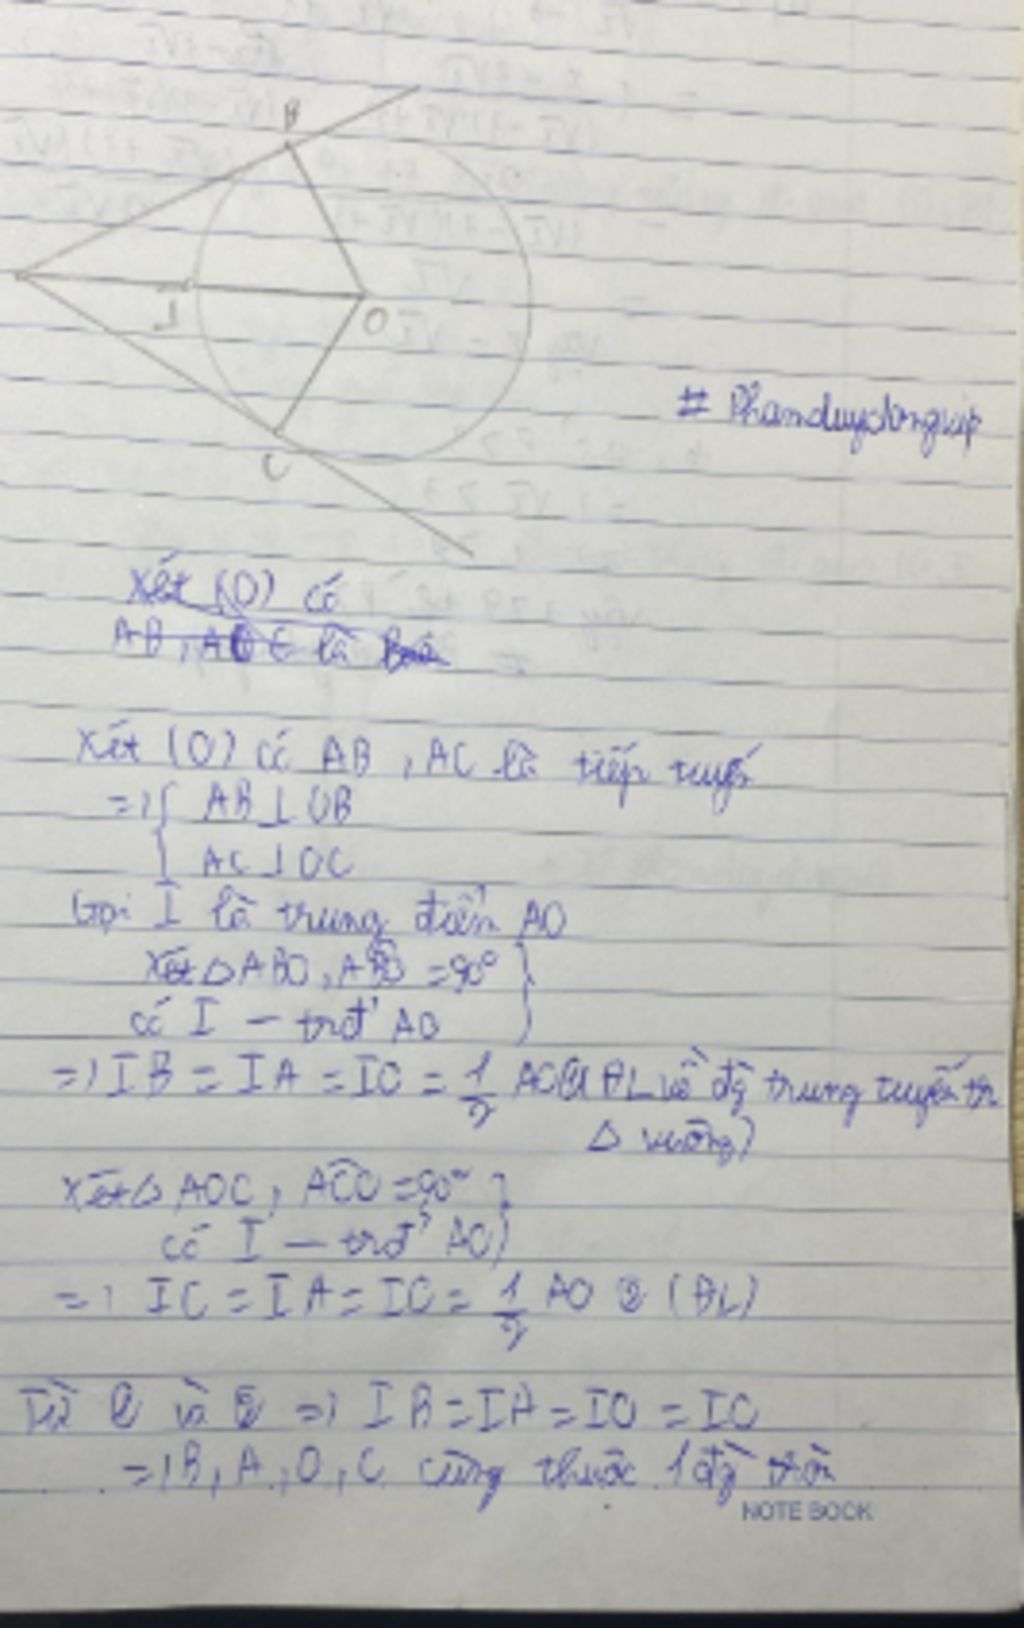 B
I
O
C
# Phamduydongiup
Xét (O) có
AB, AC là
Xét (O) có AB, AC là tiếp tuyến
=> { AB ⊥ OB
{ AC ⊥ OC
Gọi I là trung điểm AO
Xét △ ABO, ABO = 90° }
có I - trđ' AO }
=> IB = IA = IO = 1/2 AO ① (ĐL về đg trung tuyến tr
△ vuông)
Xét △ AOC, ACO = 90° }
có I - trđ' AO }
=> IC = IA = IO = 1/2 AO ② (ĐL)
Từ ① và ② => IB = IA = IO = IC
=> B, A, O, C cùng thuộc 1 đg tròn
NOTE BOOK